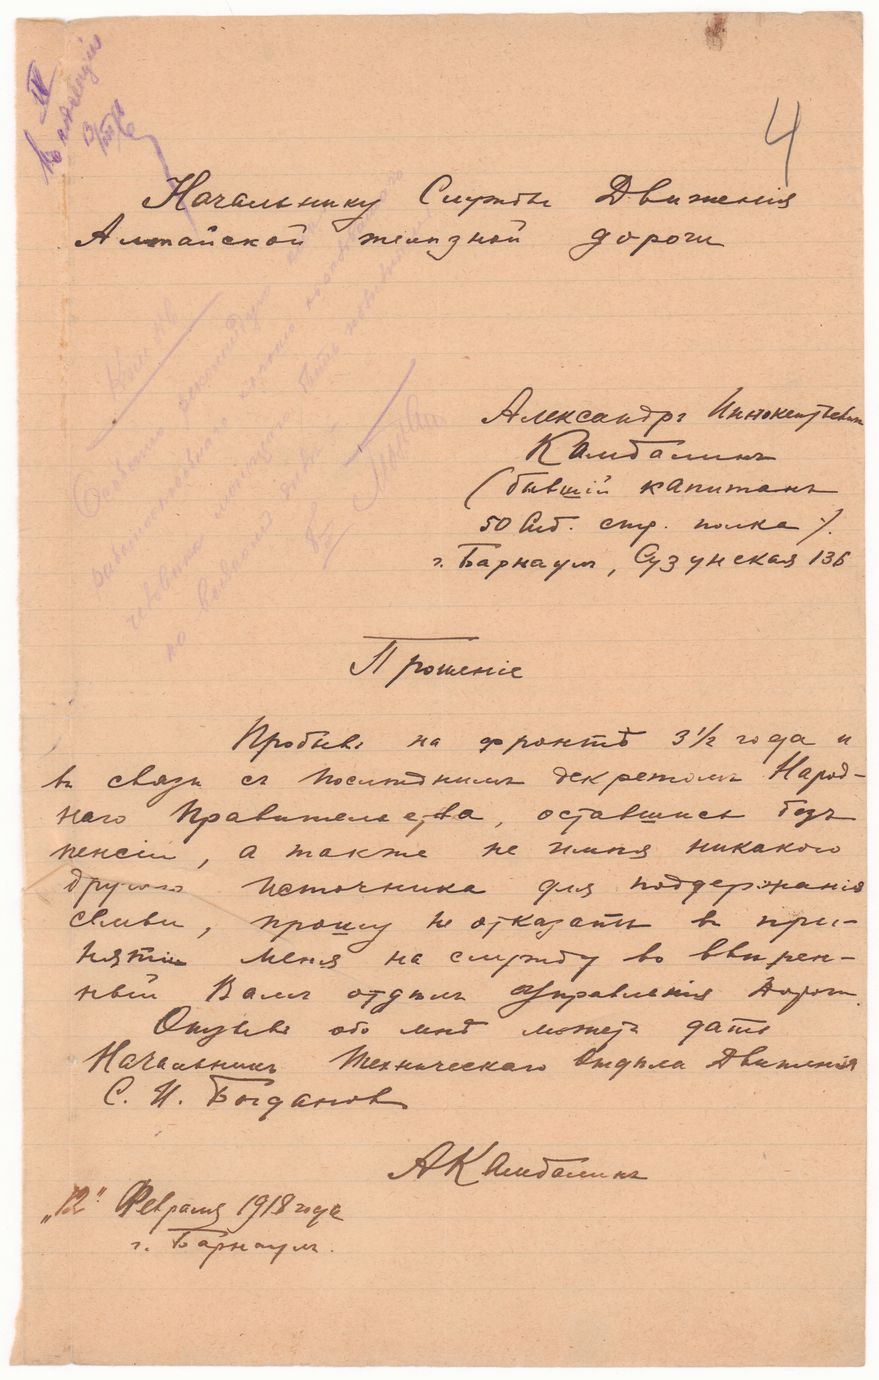 4
Начальнику Службы Движенія
Алтайской желѣзной дороги
Александръ Иннокентьевич
Камбалинъ
(бывшій капитанъ
50 Сиб. стр. полка).
г. Барнаулъ, Сузунская 136
Прошеніе
Пробывъ на фронтѣ 3½ года и
въ связи съ послѣднимъ декретомъ Народ-
наго Правительства, оставшись безъ
пенсіи, а также не имѣя никакого
другого источника для поддержанія
семьи, прошу не отказать въ при-
нятіи меня на службу во ввѣрен-
ный Вамъ отдѣлъ Управленія Дороги.
Отзывъ обо мнѣ можетъ дать
Начальникъ Техническаго Отдѣла Движенія
С. И. Богдановъ
АКамбалинъ
„12" Февраля 1918 года
г. Барнаулъ.